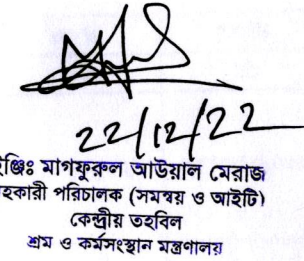 22/12/22
ইঞ্জিঃ মাগফুরুল আউয়াল মেরাজ
হকারী পরিচালক (সমন্বয় ও আইটি)
কেন্দ্রীয় তহবিল
শ্রম ও কর্মসংস্থান মন্ত্রণালয়